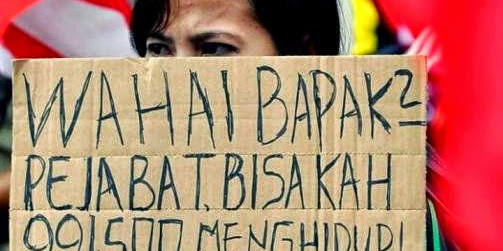 WAHAI BAPAK2
PEJABAT, BISAKAH
991500 MENGHIDUPI